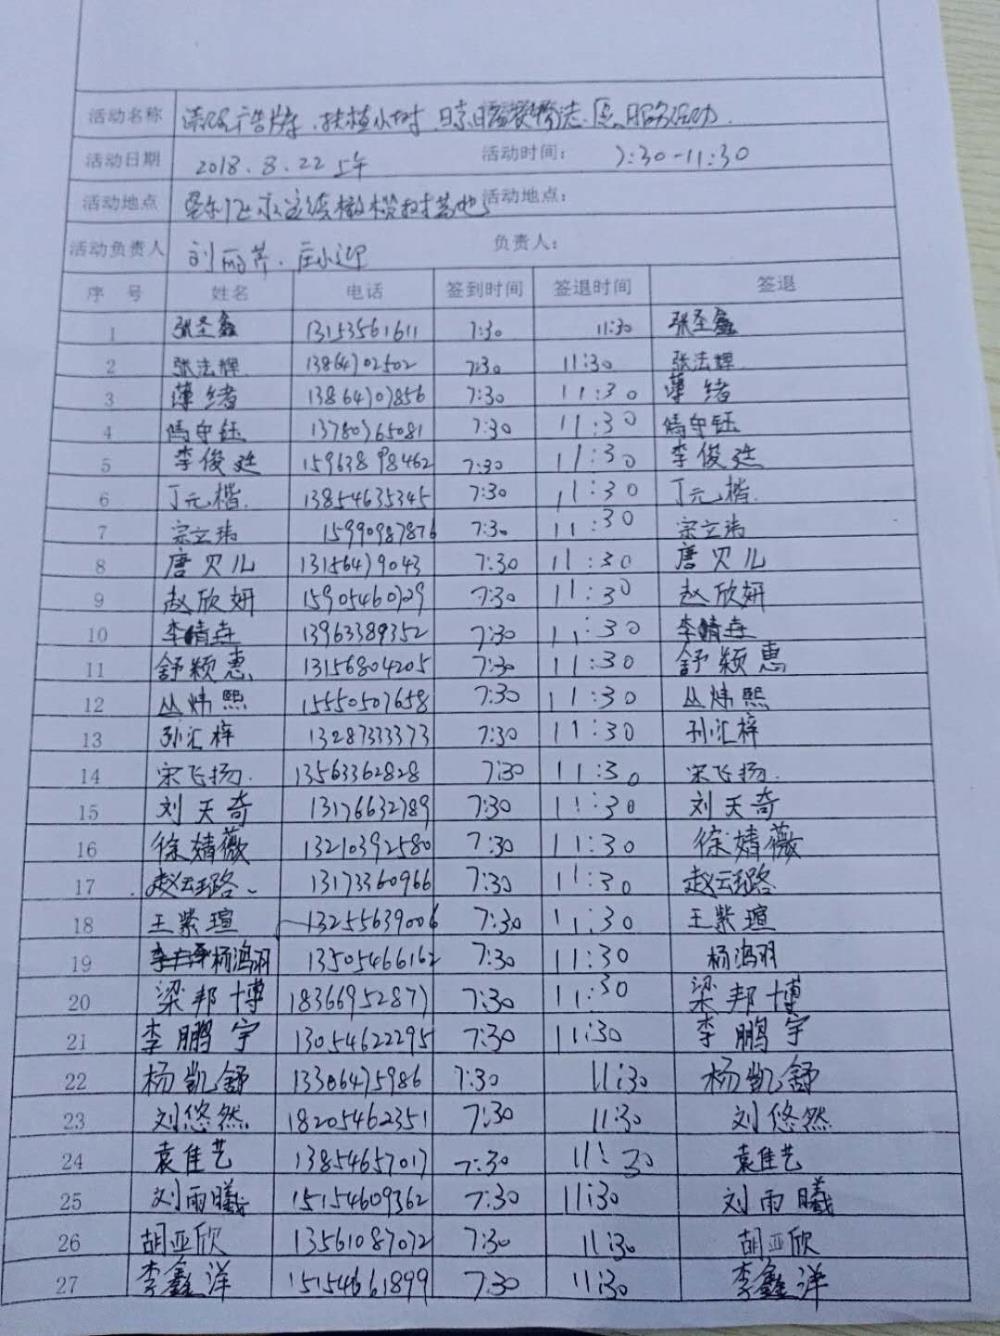 活动名称 清理广告牌、扶植小树
活动日期 2018.8.22上午 活动时间: 7:30-11:30
活动地点 活动地点:
活动负责人 刘丽芹、庄小迎 负责人:
序 号 姓名 电话 签到时间 签退时间 签退
1 张圣鑫 13153561611 7:30 11:30 张圣鑫
2 张法辉 13864702502 7:30 11:30 张法辉
3 薄绪 13864707856 7:30 11:30 薄绪
4 13780765081 7:30 11:30
5 李俊廷 15963898462 7:30 11:30 李俊廷
6 丁元楷 13854635345 7:30 11:30 丁元楷
7 宗立玮 15990987876 7:30 11:30 宗立玮
8 唐贝儿 13156479043 7:30 11:30 唐贝儿
9 赵欣妍 15905460729 7:30 11:30 赵欣妍
10 李婧垚 13963389352 7:30 11:30 李婧垚
11 舒颖惠 13156804205 7:30 11:30 舒颖惠
12 丛炜熙 15550507658 7:30 11:30 丛炜熙
13 孙汇梓 13287333373 7:30 11:30 孙汇梓
14 宋飞扬. 13563362828 7:30 11:30 宋飞扬.
15 刘天奇 13176632789 7:30 11:30 刘天奇
16 徐婧薇 13210392580 7:30 11:30 徐婧薇
17 赵云璐 13173360966 7:30 11:30 赵云璐
18 王紫瑄 13255639006 7:30 11:30 王紫瑄
19 杨鸿羽 13505466162 7:30 11:30 杨鸿羽
20 梁邦博 18366952877 7:30 11:30 梁邦博
21 李鹏宇 13054622295 7:30 11:30 李鹏宇
22 杨凯舒 13306475986 7:30 11:30 杨凯舒
23 刘悠然 18205462351 7:30 11:30 刘悠然
24 袁佳艺 13854657017 7:30 11:30 袁佳艺
25 刘雨曦 15154609362 7:30 11:30 刘雨曦
26 胡亚欣 13561087072 7:30 11:30 胡亚欣
27 李鑫洋 15154661899 7:30 11:30 李鑫洋